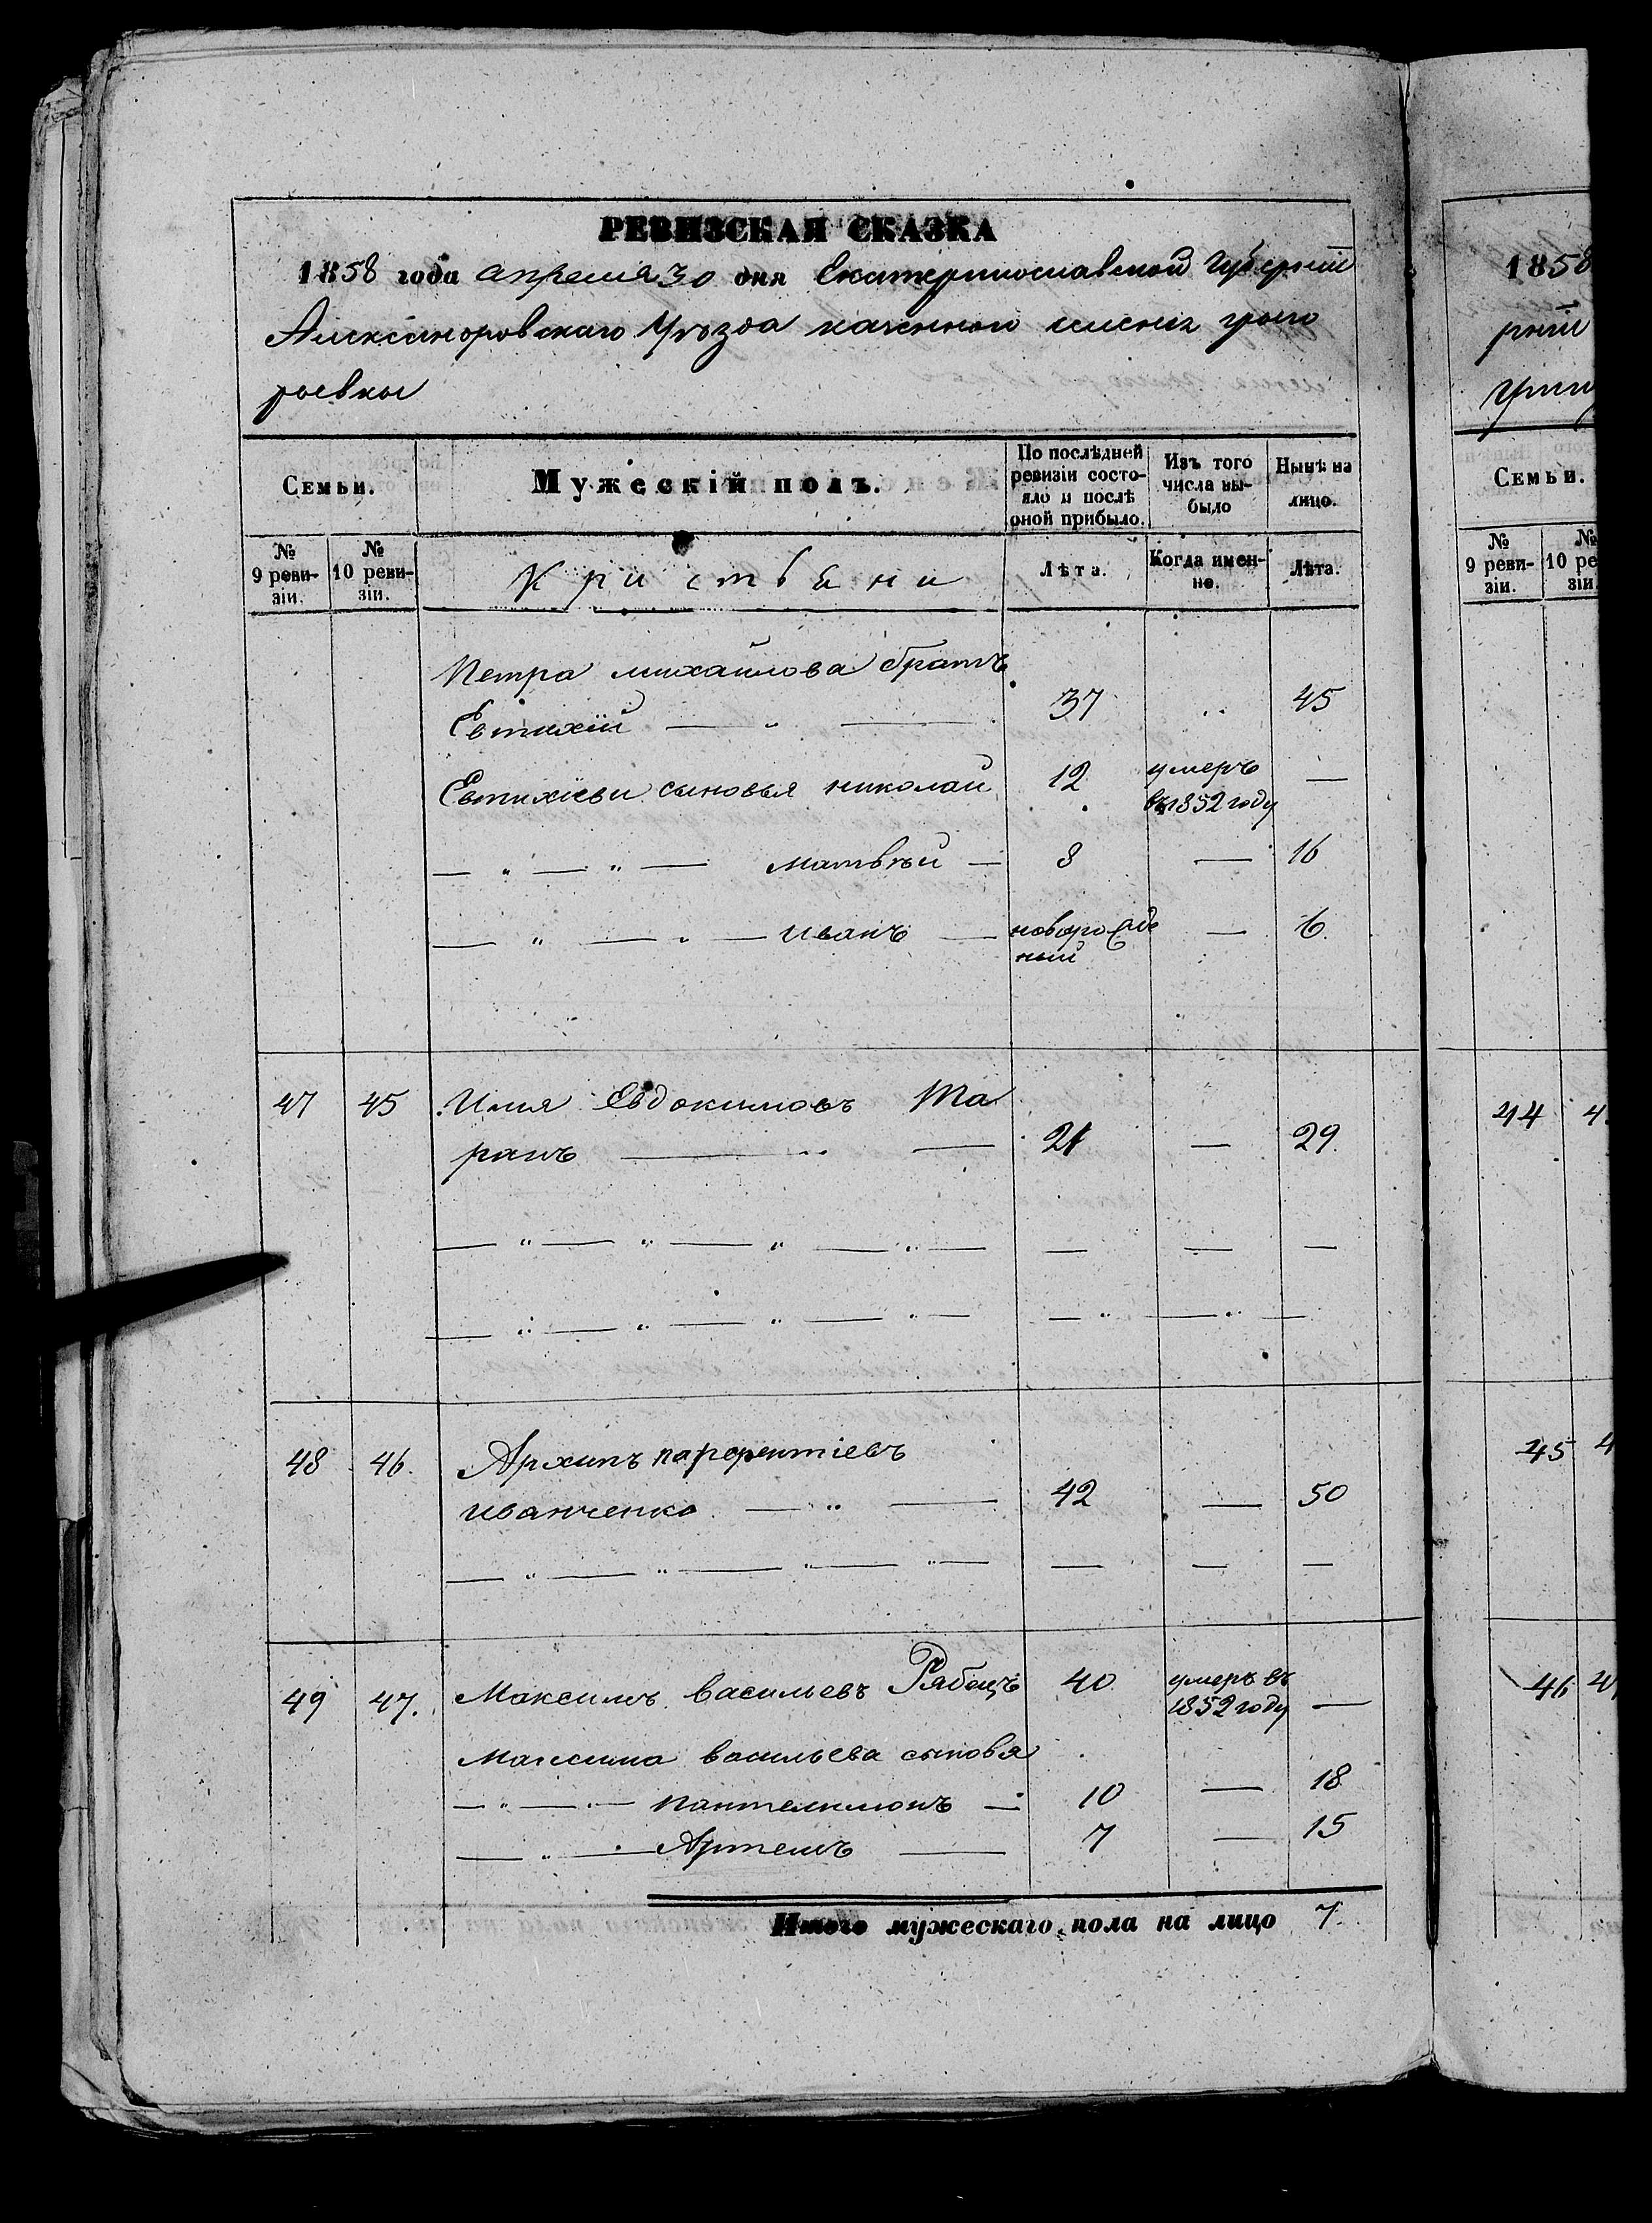 РЕВИЗСКАЯ СКАЗКА
1858 года апреля 30 дня Екатеринославской Губерніи
Александровскаго Уѣзда казенной
роевки
Семьи.
Мужескій полъ.
По послѣдней ревизіи состояло и послѣ оной прибыло.
Изъ того числа выбыло
Нынѣ на лицо.
№ 9 ревизіи.
№ 10 ревизіи.
Лѣта.
Когда именно.
Лѣта.
Петра михайлова братъ
Евтихій — „ — 37 „ 45
Евтихіеви сыновья николай 12 умеръ въ 1852 году —
— „ — „ — матвѣй — 8 — 16
— „ — „ — иванъ — новорожденый — 6.
47 45 Илья Евдокимовъ Та
ранъ — „ — 21 — 29.
— „ — „ — „ — „ — — — —
— „ — „ — „ — „ — — „ — „ —
48 46. Архипъ парфентіевъ
иванченко — „ — 42 — 50
— „ — „ — „ — „ — — — —
49 47. Максимъ васильевъ Рябецъ 40 умеръ въ 1852 году —
Максима васильева сыновя
— „ — „ — пантелимонъ — 10 — 18
— „ — Артемъ — 7 — 15
Итого мужескаго пола на лицо 7.
1858
рніи
Семьи.
№ 9 ревизіи.
№ 10 ре
зіи
44 4
45 4
46 4